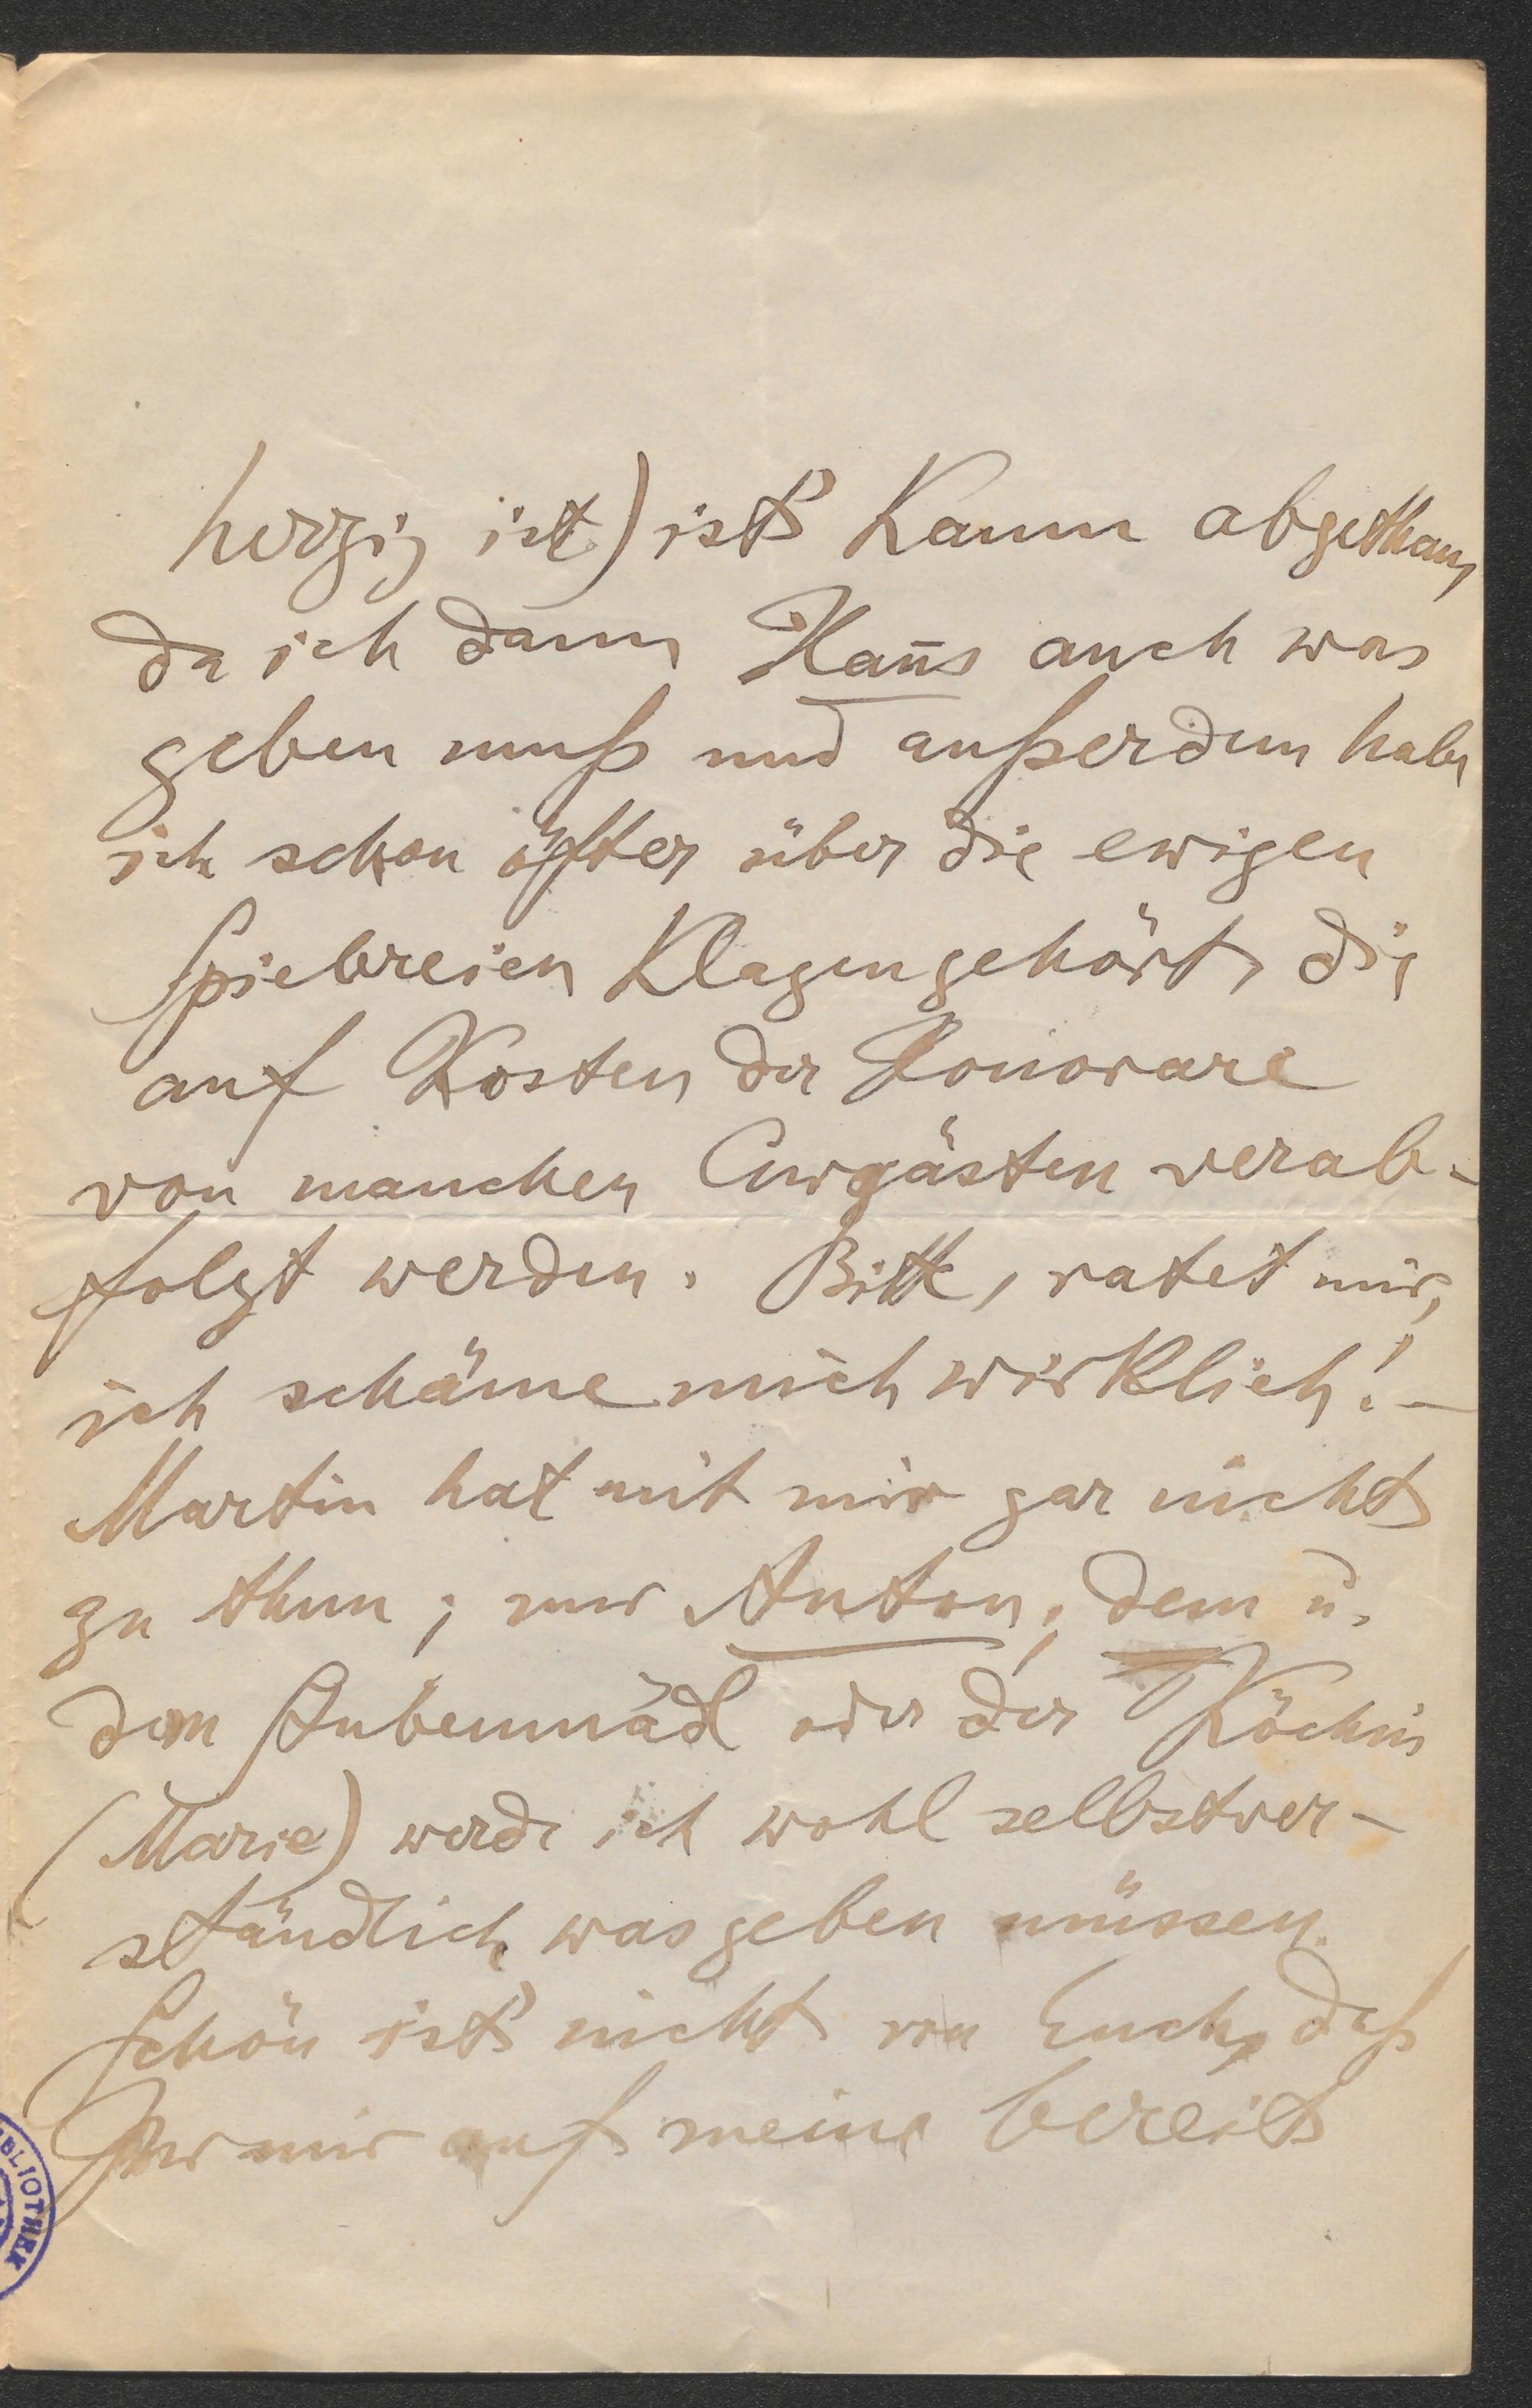 herzig ist) ist's kaum abgethan,
da ich dann Han̄s auch was
geben muß und außerdem habe
ich schon öfter über die ewigen
Spielereien Klagen gehört, die
auf Kosten der Honorare
von manchen Curgästen verab-
folgt werden. Bitte, ratet mir,
ich schäme mich wirklich! –
Martin hat mit mir gar nichts
zu thun; nur Anton; dem u.
dem Stubenmädl oder der Köchin
(Marie) werde ich wohl selbstver-
ständlich was geben müssen.
Schön ist's nicht von Euch, daß
Ihr mir auf meine bereits
BLIOTHEK